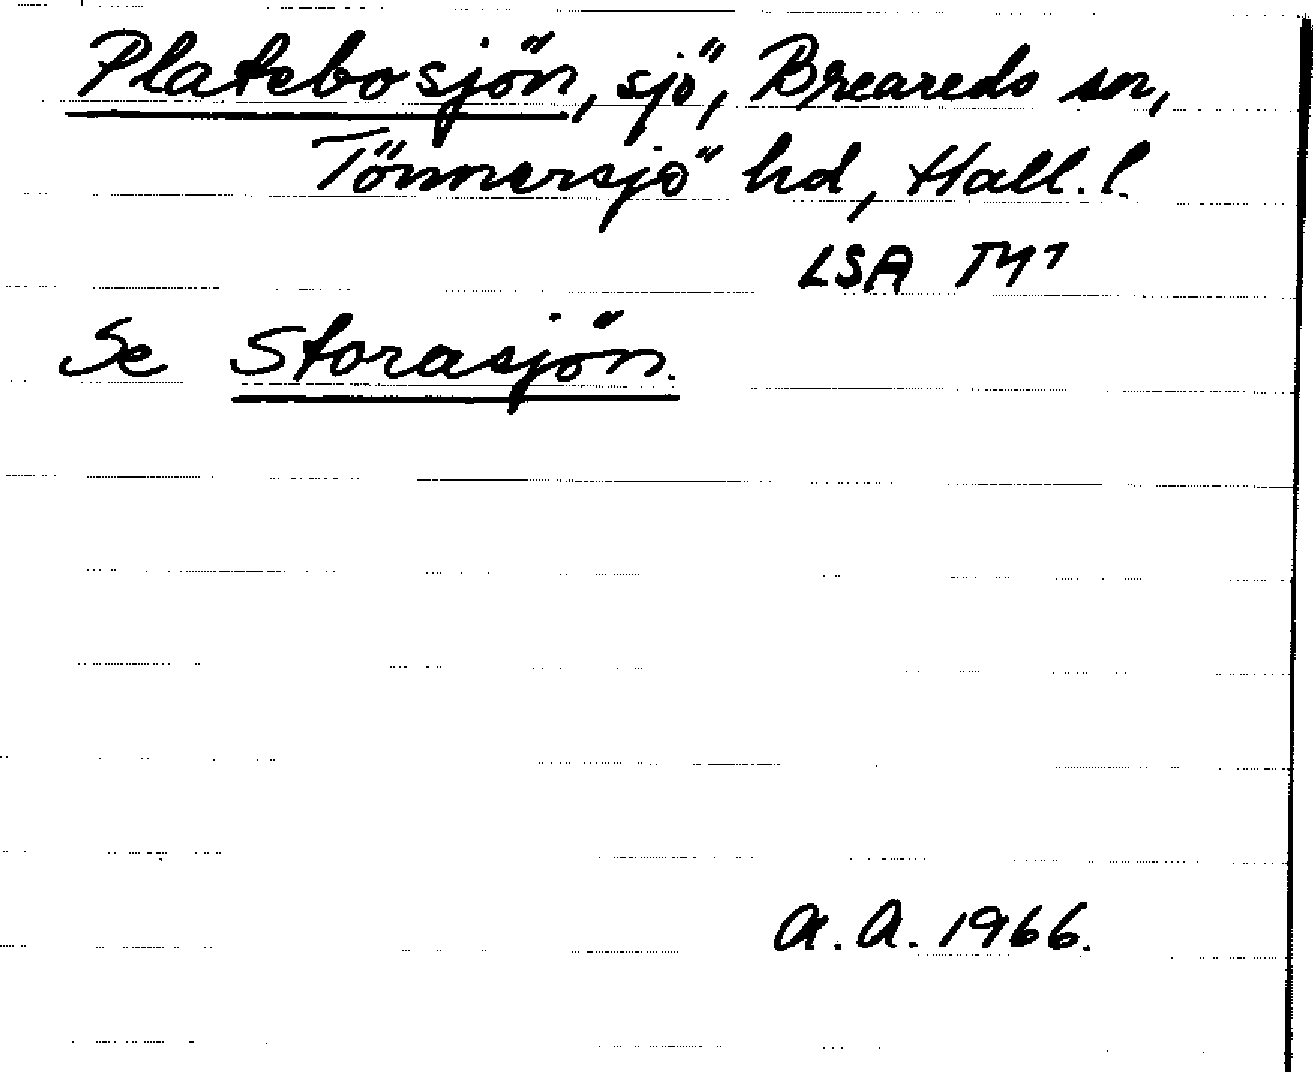 Platebosjön, sjö, Breareds sn,
Tönnersjö hd, Hall. l.
LSA
Se Storasjön.
A.A. 1966.